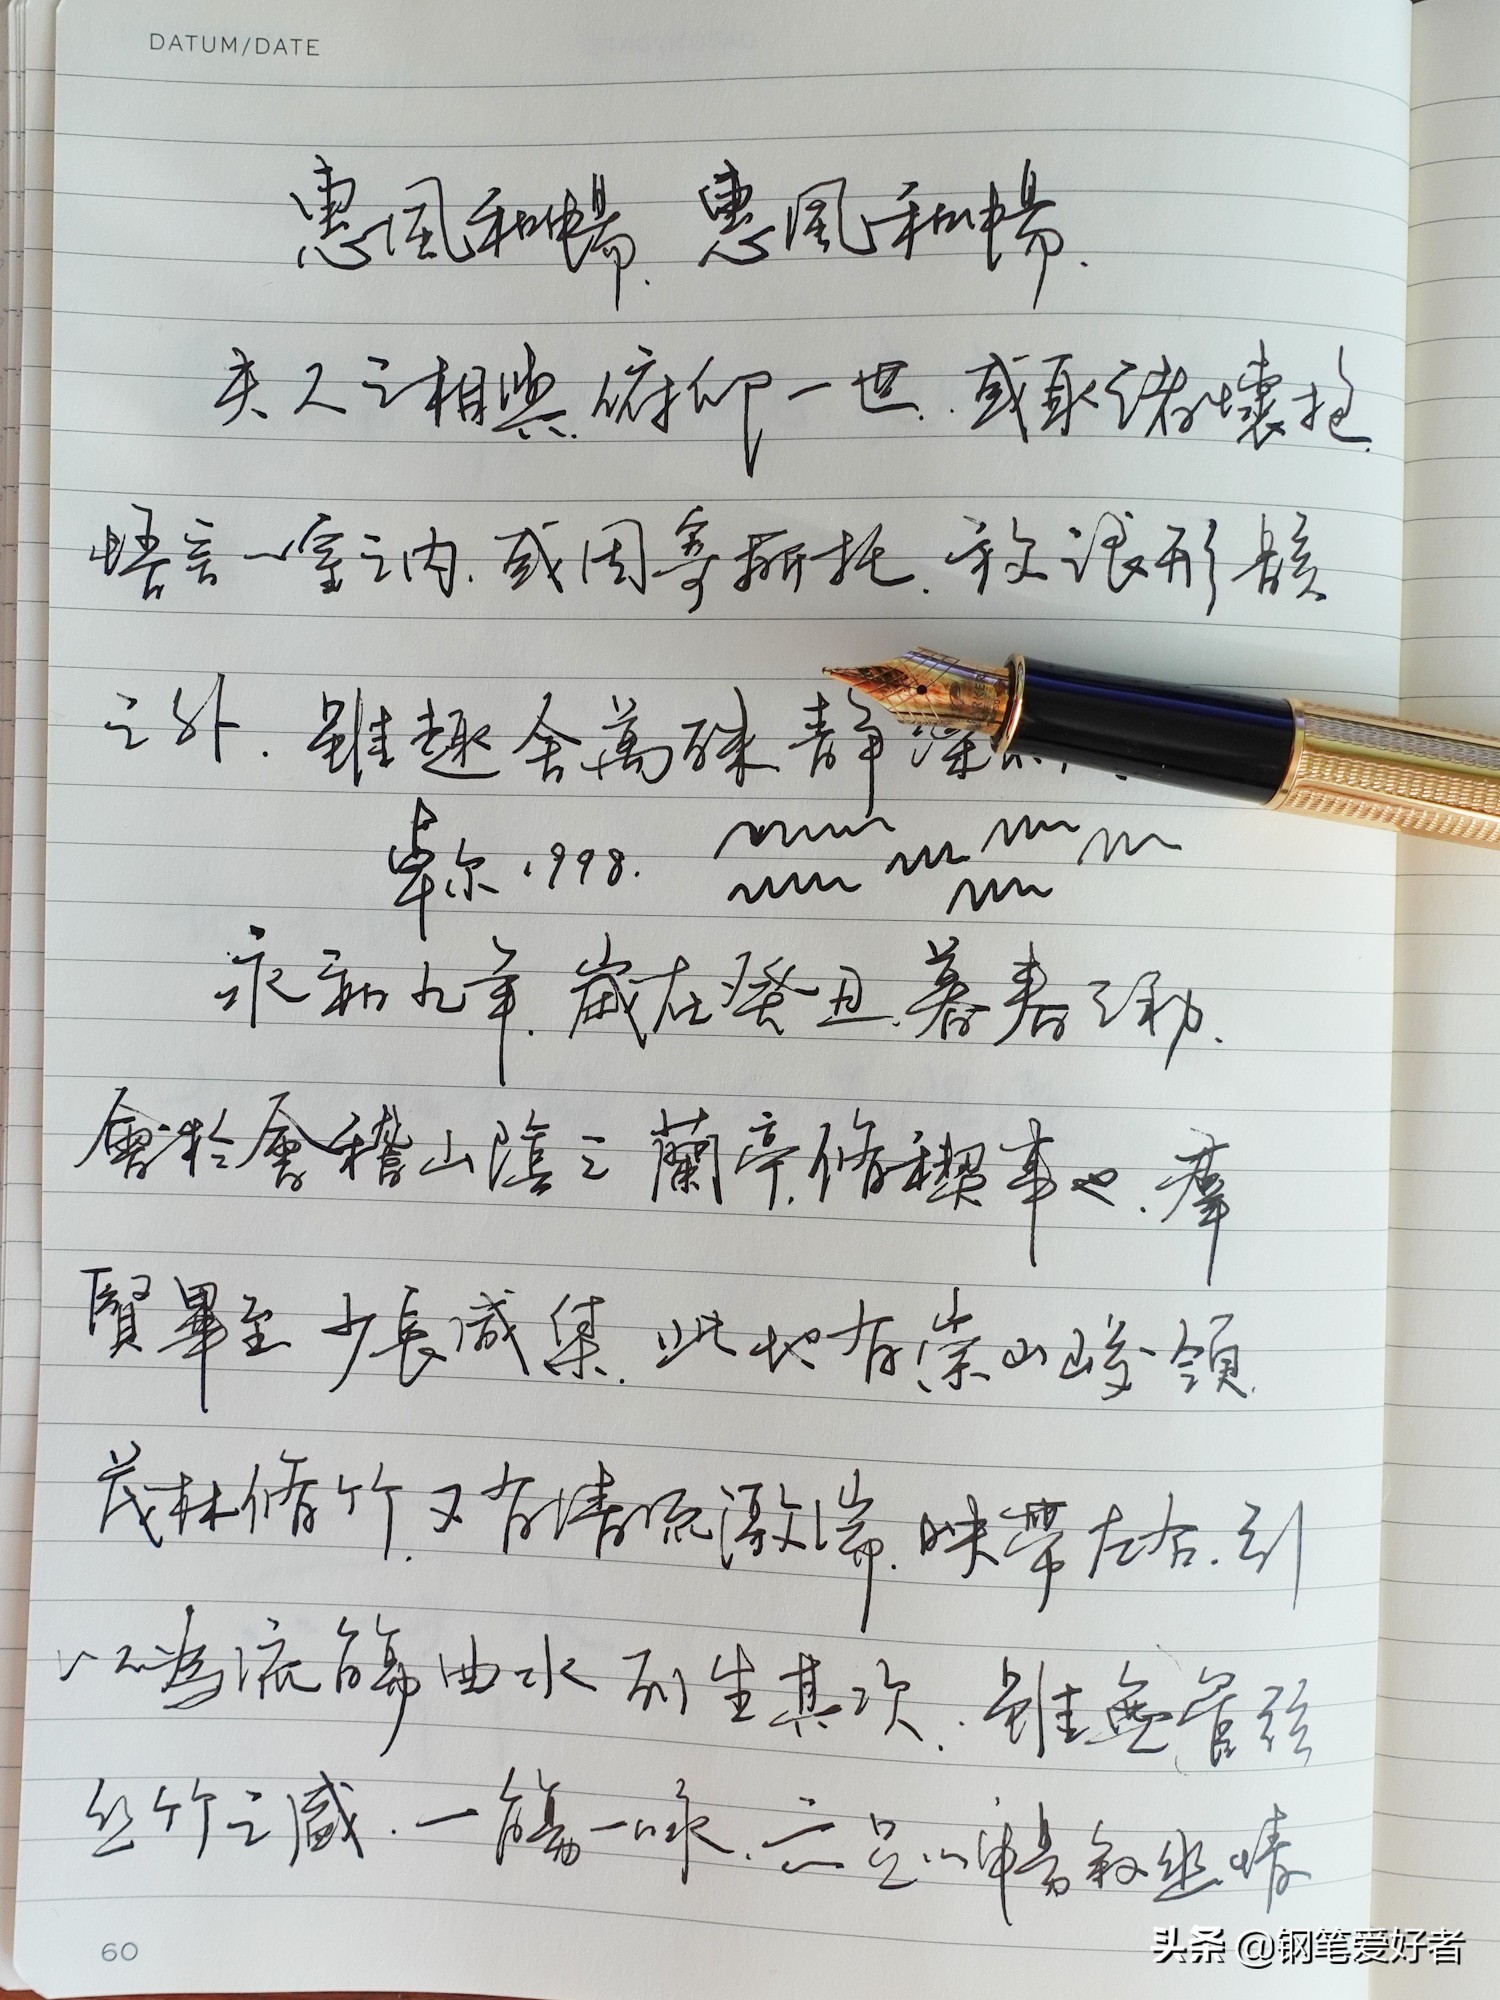 DATUM/DATE
惠風和暢.惠風和暢.
夫人之相與俯仰一世.或取諸懷抱.
悟言一室之內.或因寄所托.放浪形骸
之外.雖趣舍萬殊.靜躁
卓尔1998.
永和九年.歲在癸丑.暮春之初.
會於會稽山陰之蘭亭.脩稧事也.羣
賢畢至少長咸集.此地有崇山峻領.
茂林脩竹.又有清流激湍.映帶左右.引
以為流觴曲水列坐其次.雖無管弦
丝竹之盛.一觴一詠.亦足以暢敘幽情
60
头条 @钢笔爱好者